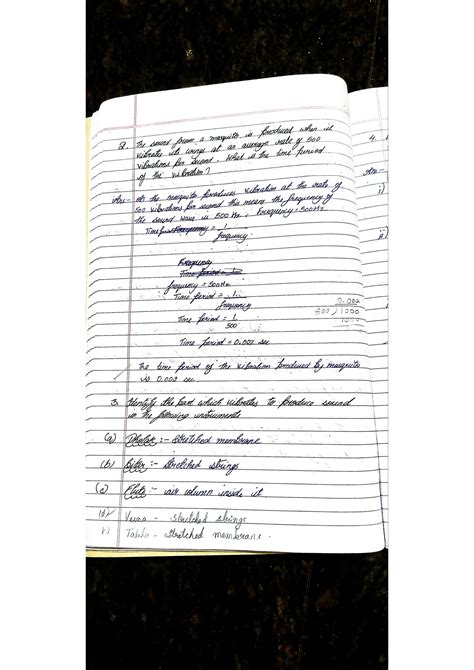 Q. The sound from a mosquito is produced when it
vibrates its wings at an average rate of 500
vibrations per second. What is the time period
of the vibration?
Ans:- As the mosquito produces vibration at the rate of
500 vibrations per second this means the frequency of
the sound wave is 500 Hz, Frequency = 500Hz
Time Frequency = 1
frequency
Frequency
Time period = 1
frequency = 500Hz
Time period = 1
frequency
0.002
500 / 1000
1000
Time period = 1
500
Time Period = 0.002 sec
The time period of the vibration produced by mosquito
is 0.002 sec
3. Identify the part which vibrates to produce sound
in the following instruments
(a) Dholak :- Stretched membrane
(b) Sitar :- Stretched strings
(c) Flute :- air column inside it
(d) Veena - stretched strings
Tabla - stretched membrane.
4.
Ans:-
i)
ii)